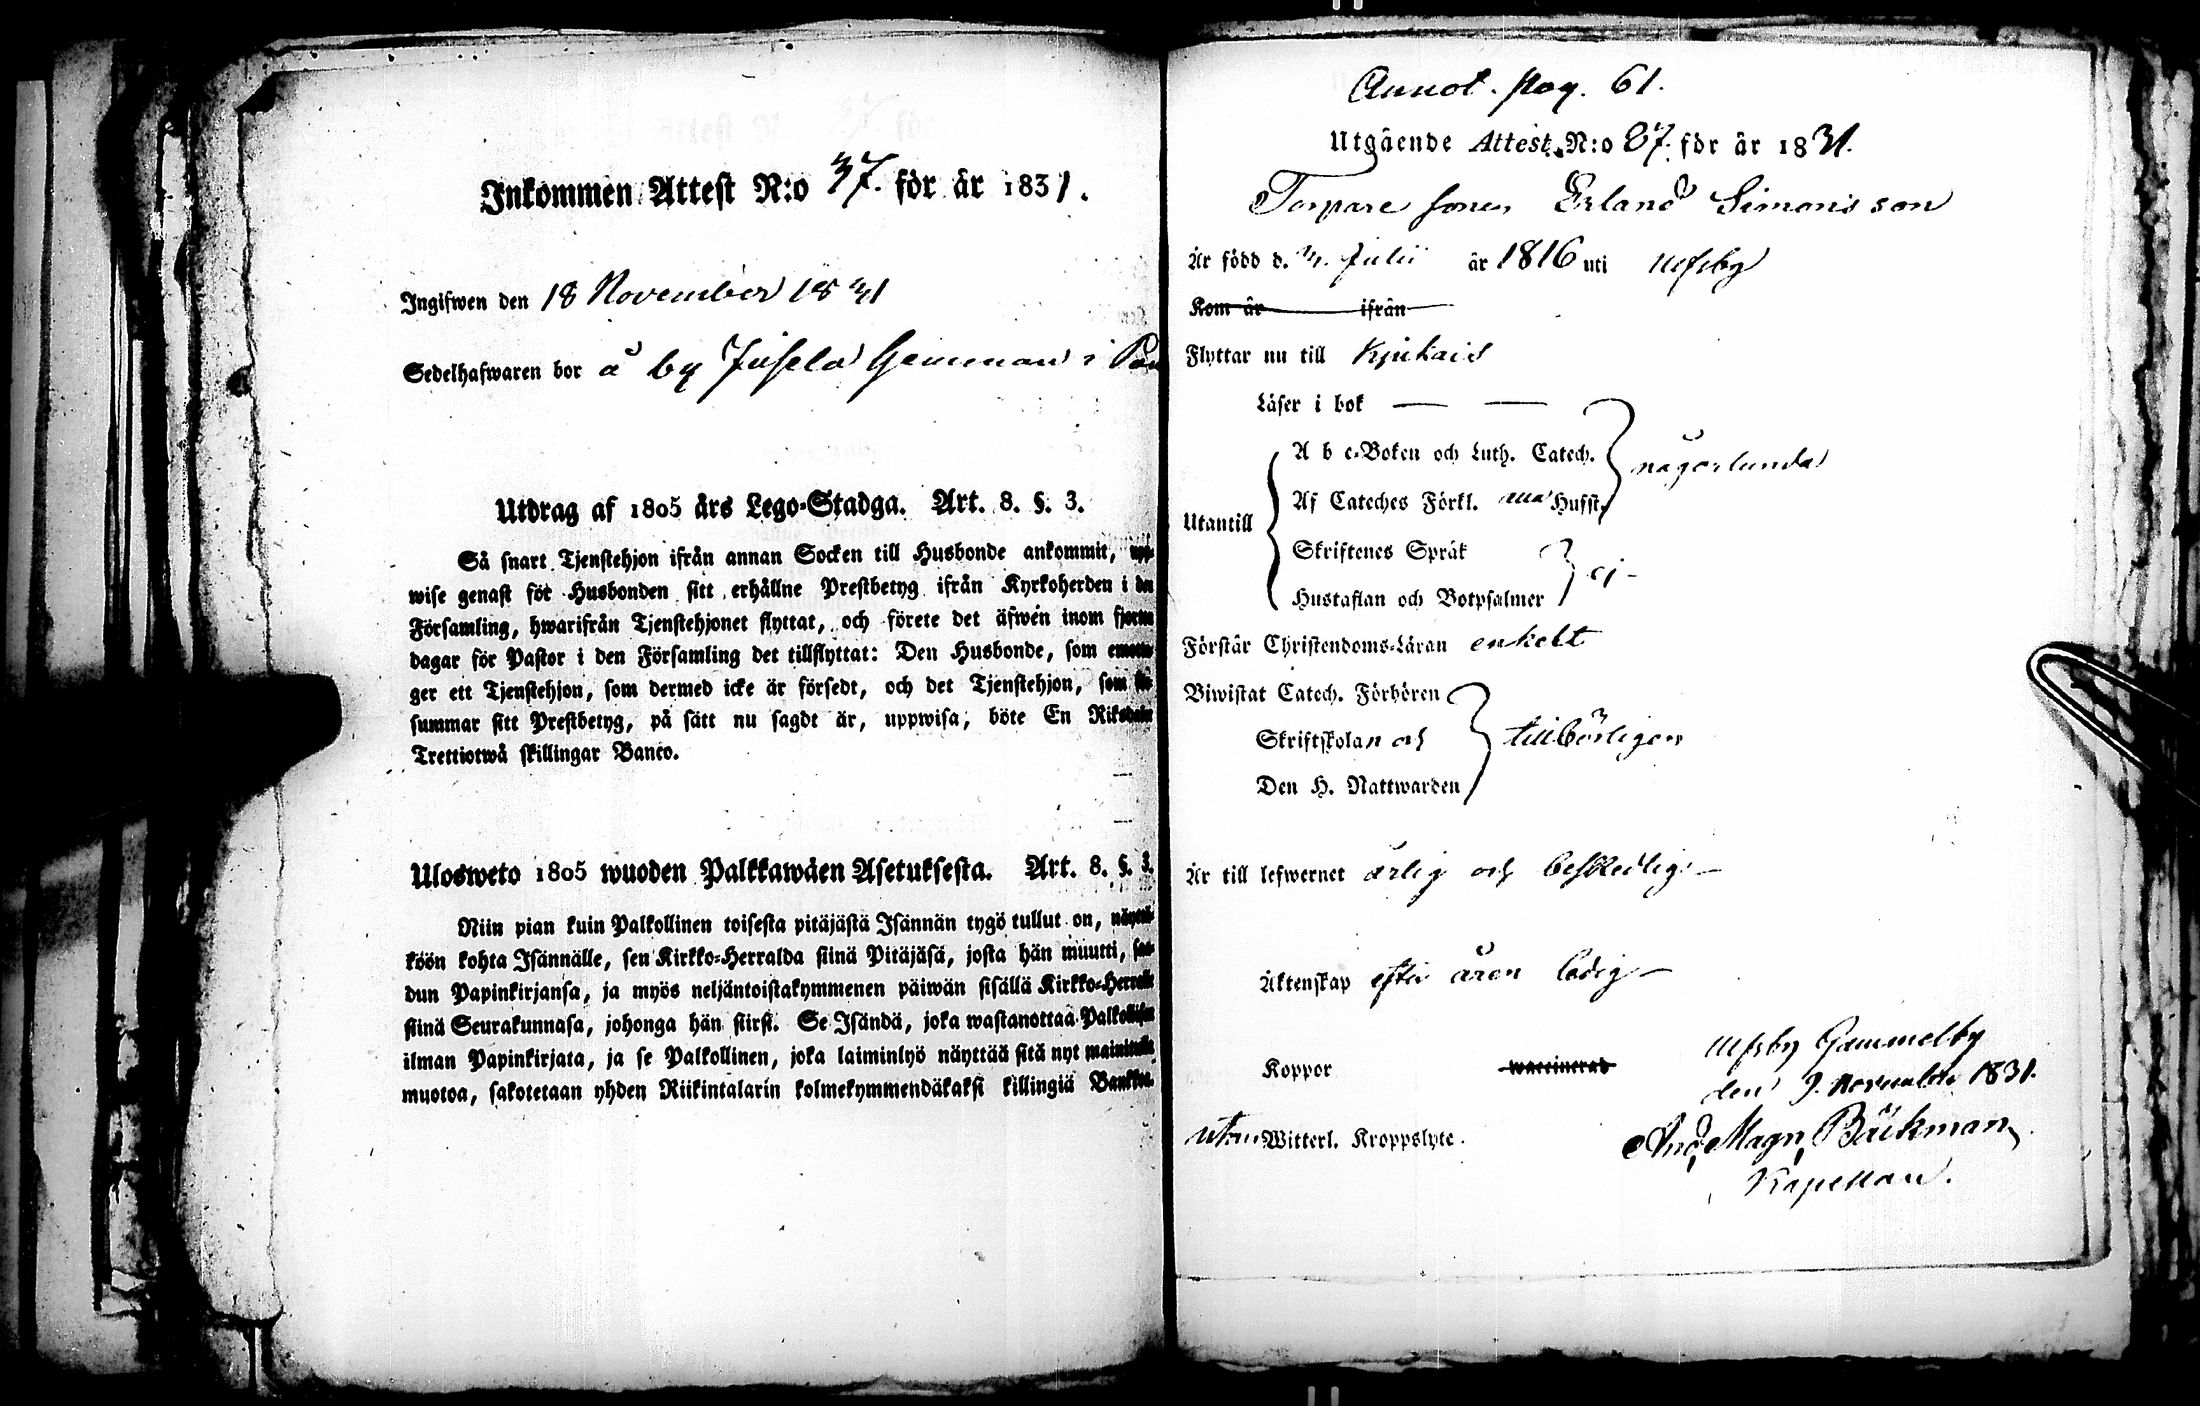 Inkommen Attest N:o 37. för år 1831.
Ingifwen den 18 November 1831
Sedelhafwaren bor å by Jusela Gemman i
Utdrag af 1805 års Lego-Stadga. Art. 8. §. 3.
Så snart Tjenstehjon ifrån annan Socken till Husbonde ankommit, upp-
wise genast för Husbonden sitt erhållne Prestbetyg ifrån Kyrkoherden i den
Församling, hwarifrån Tjenstehjonet flyttat, och förete det äfwen inom fjorton
dagar för Pastor i den Församling det tillflyttat: Den Husbonde, som emotta-
ger ett Tjenstehjon, som dermed icke är försedt, och det Tjenstehjon, som för-
summar sitt Prestbetyg, på sätt nu sagdt är, uppwisa, böte En Riksdaler
Trettiotwå skillingar Banco.
Ulosweto 1805 wuoden Palkkawäen Asetuksesta. Art. 8. §. 3.
Niin pian kuin Palkollinen toisesta pitäjästä Isännän tygö tullut on, näyttä-
köön kohta Isännälle, sen Kirkko-Herralda siinä Pitäjäsä, josta hän muutti, saa-
dun Papinkirjansa, ja myös neljäntoistakymmenen päiwän sisällä Kirkko-Herralle
siinä Seurakunnasa, johonga hän siirsi. Se Isändä, joka wastanottaa Palkollisen
ilman Papinkirjata, ja se Palkollinen, joka laiminlyö näyttää sitä nyt mainitulla
muotoa, sakotetaan yhden Riikintalarin kolmekymmendäkaksi killingiä Bankkoa.
Annot. pag. 61.
Utgående Attest N:o 87. för år 1831.
Torpare sonen Erland Simonsson
Är född d. 3. Julii år 1816 uti Ulfsby
Kom år ifrån
Flyttar nu till Kjukais
Läser i bok — —
A b c-Boken och Luth. Catech. någorlunda
Utantill
Af Cateches Förkl. Husst.
Skriftenes Språk
ej -
Hustaflan och Botpsalmer
Förstår Christendoms-Läran enkelt
Biwistat Catech. Förhören
Skriftskolan och tillbörligen
Den H. Nattwarden
Är till lefwernet ärlig och beskedlig. —
Äktenskap efter åren ledig —
Koppor waccinerad
Ulfsby Gammelby
den 9. November 1831.
utan Witterl. Kroppslyte.
And. Magn. Bäckman
Kapellan.